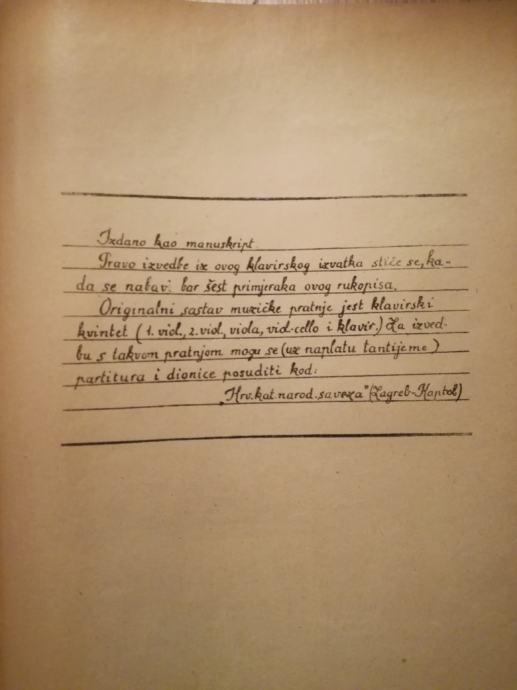 Izdano kao manuskript.
Pravo izvedbe iz ovog klavirskog izvatka stiče se, ka-
da se nabavi bar šest primjeraka ovog rukopisa.
Originalni sastav muzičke pratnje jest klavirski
kvintet (1. viol., 2. viol, viola, viol-cello i klavir.) Za izved-
bu s takvom pratnjom mogu se (uz naplatu tantijeme)
partitura i dionice posuditi kod:
„Hrv. kat. narod. saveza" (Zagreb-Kaptol)